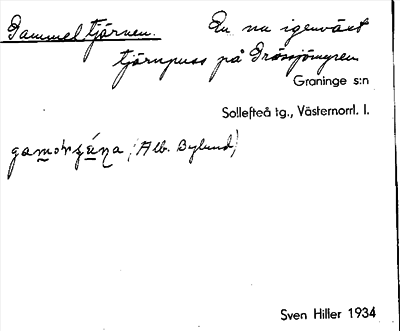 Gammeltjärnen. En nu igenväxt
tjärnpuss på Gråssjömyren
Graninge s:n
Sollefteå tg., Västernorrl. l.
(Alb. Bylund)
Sven Hiller 1934